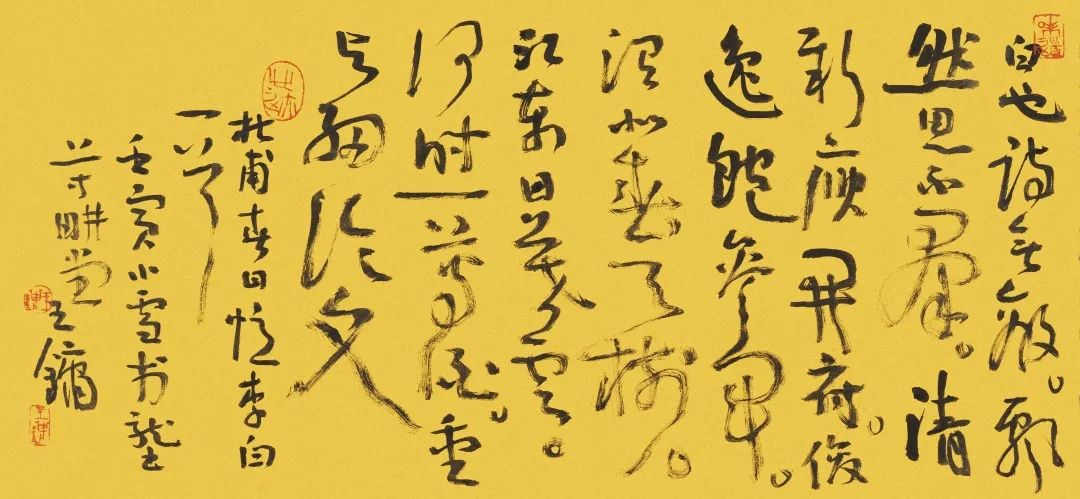 白也诗无敌。飘
然思不群。清
新庾开府。俊
逸鲍参军。
渭北春天树。
江东日暮云。
何时一尊酒。重
与细论文
杜甫春日忆李白
一首
壬寅小雪书垄
上寸畊堂王镛